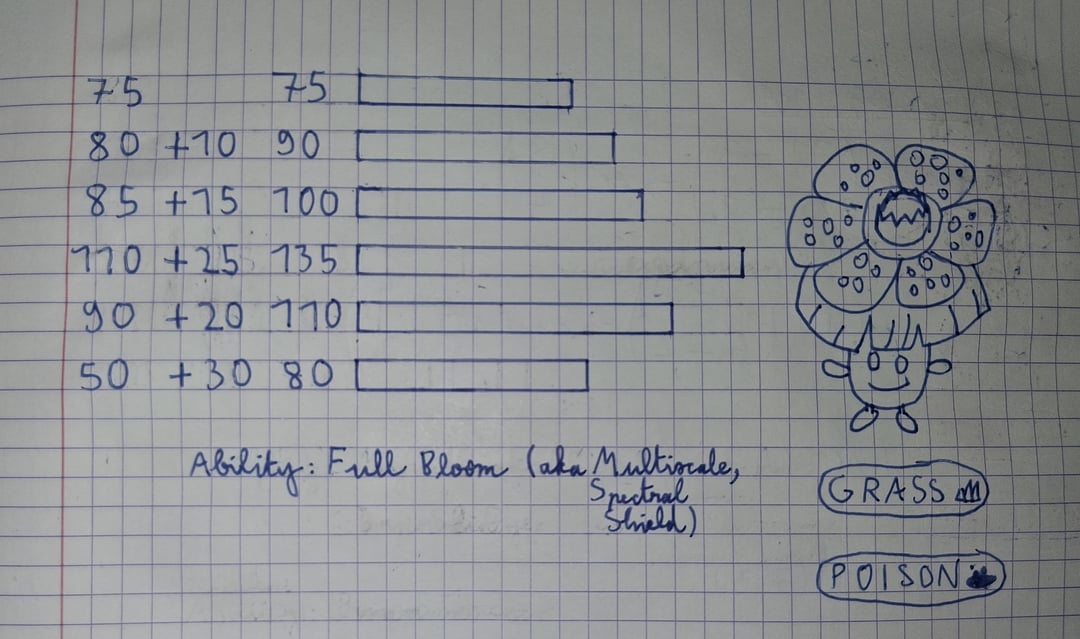 75 75
80 +10 90
85 +15 100
110 +25 135
90 +20 110
50 +30 80
Ability: Full Bloom (aka Multiscale,
Spectral
Shield)
GRASS
POISON